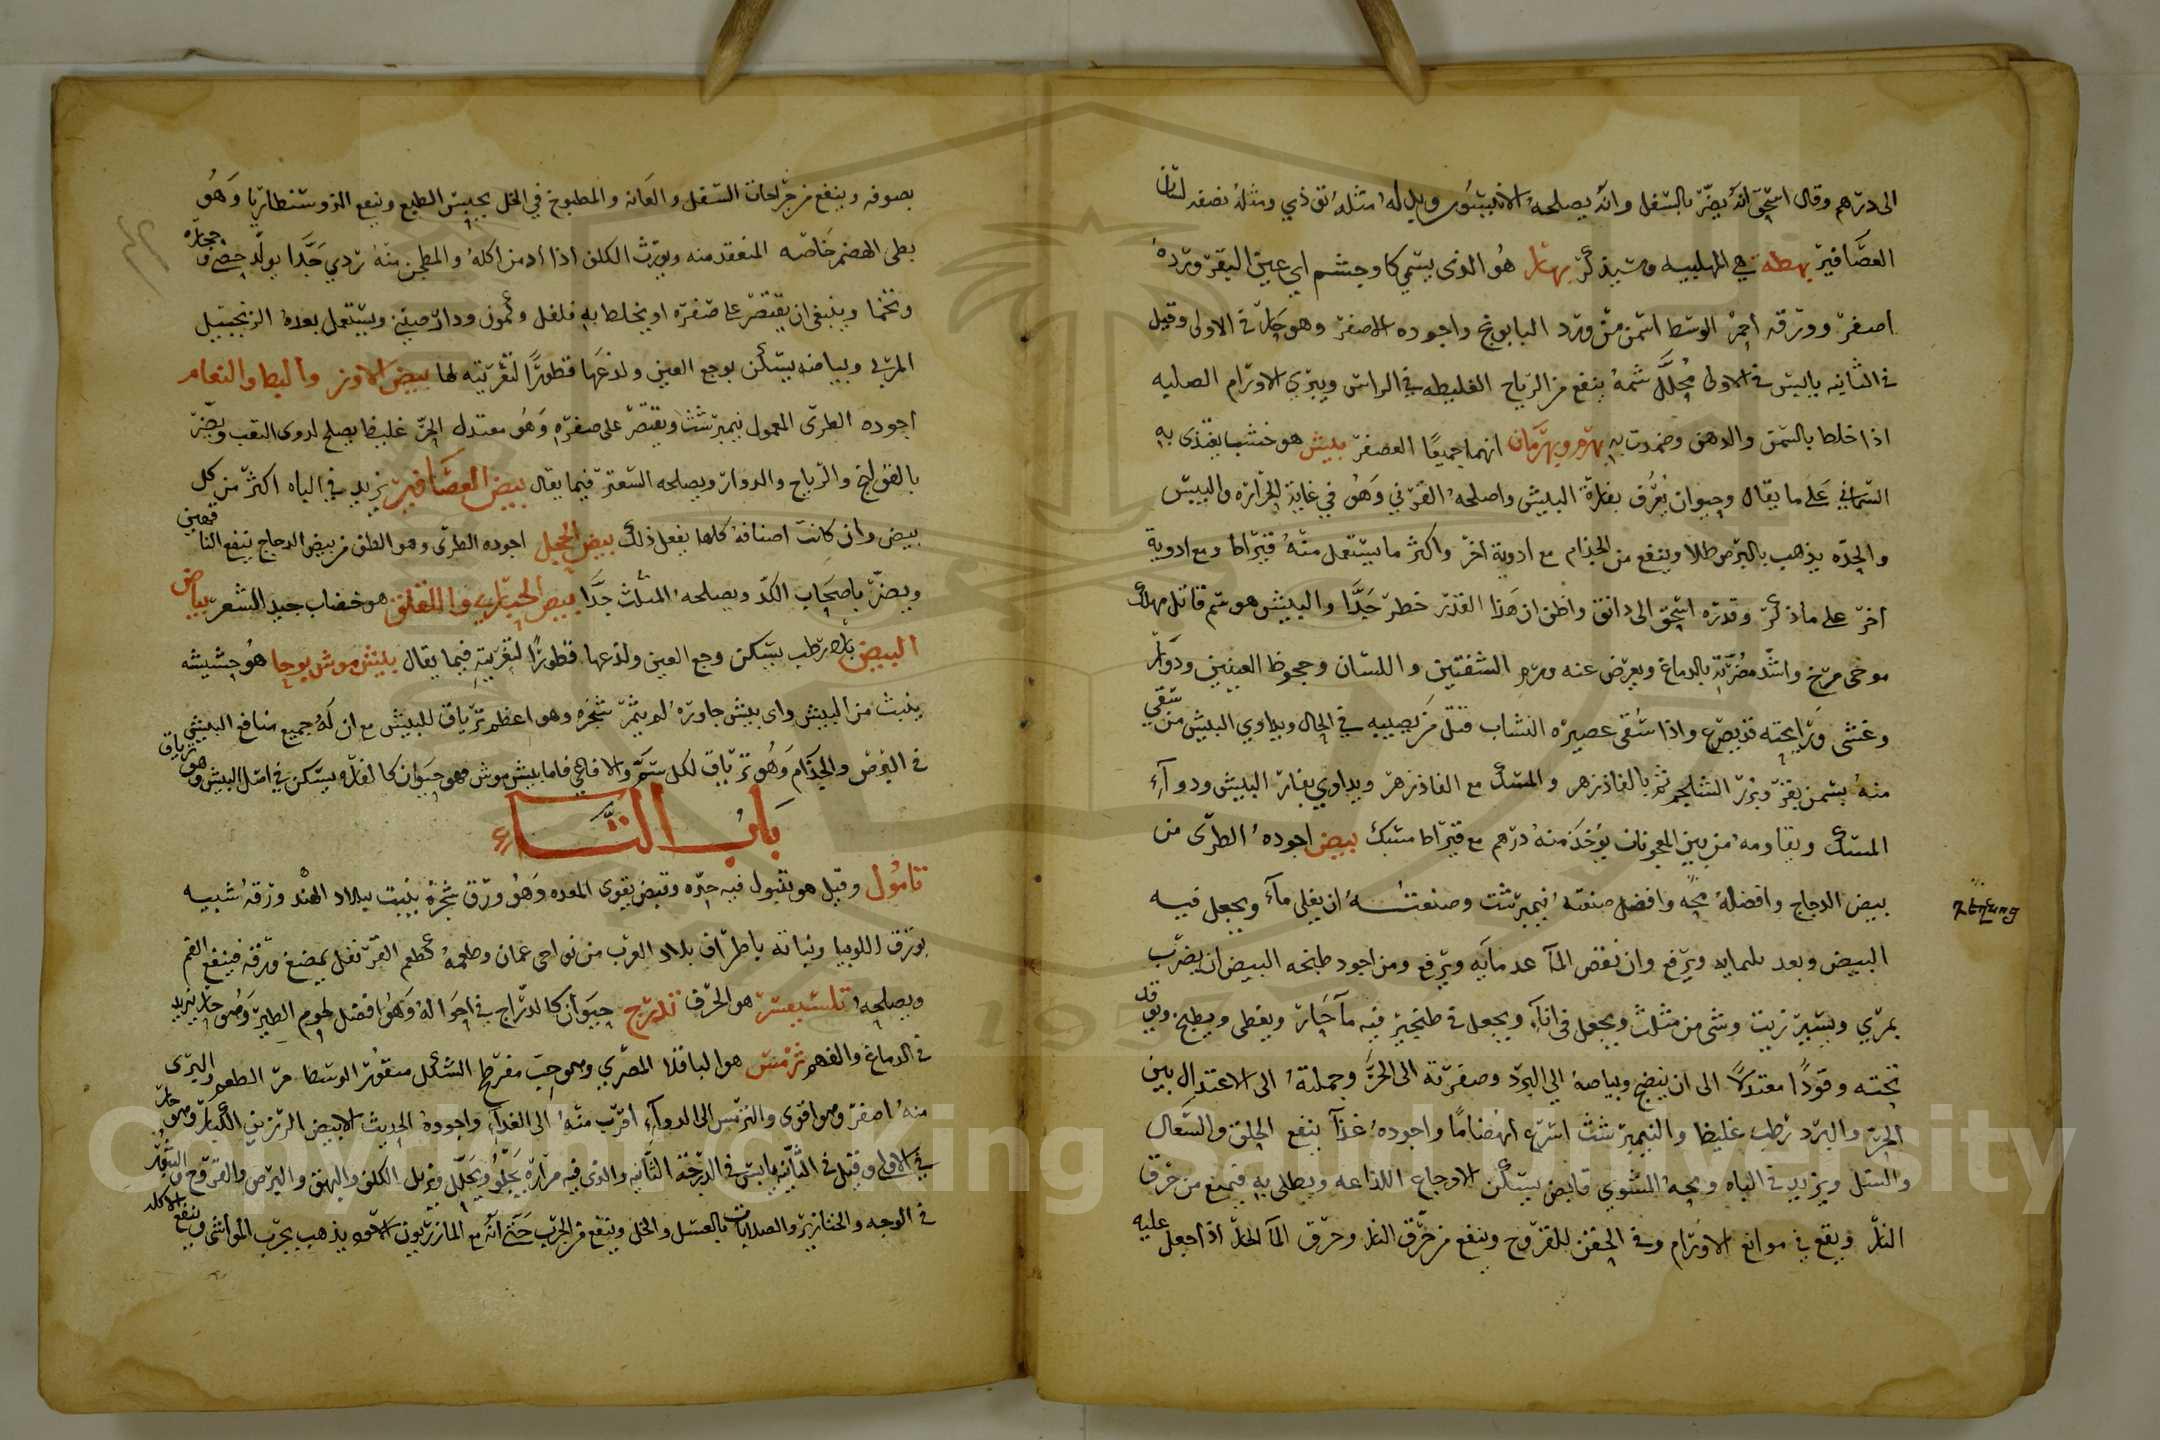 الى درهم وقال اسحق انه يضر بالسفل وانه يصلحه الانيسون وبدله مثله تودري ومثله نصفه لسان
العصافير بهطه هي المهلبيه وستذكر بهار هو الذي يسمى كاوجشم اي عين البقر وورده
اصفر وورقه احمر الوسط اسمن من ورد البابونج واجوده الاصفر وهو حار في الاولى وقيل
في الثانيه يابس في الاولى محلل شمه ينفع من الرياح الغليظه في الراس ويبري الاورام الصلبه
اذا خلط بالسمن والدهن وضمدت به بهرم وبهرمان انهما جميعا العصفر بيش هو خشب يغتذى به
السماني على ما يقال وحيوان يعرف بفارة البيش واصلحه القرني وهو في غاية الحراره واليبس
والحده يذهب بالبرص طلا وينفع من الجذام مع ادوية اخر واكثر ما يستعمل منه قيراط ومع ادوية
اخر على ما ذكر وقدره اسحق الى دانق واظن ان هذا القدر خطر جدا والبيش هو سم قاتل مهلك
موخى مرخ واشد مضرته بالدماغ ويعرض عنه ورم الشفتين واللسان وجحوظ العينين ودوار
وغشى ورايحته قد يصرع واذا سقى عصيره النشاب قتل من يصيبه في الحال ويداوي البيش من سقي
منه بسمن بقر وبزر الشلجم ثم بالفاذزهر والمسك مع الفاذزهر ويداوي بفار البيش ودوآء
المسك ويقاومه من بين المعجونات يوخذ منه درهم مع قيراط مسك بيض اجوده الطرى من
بيض الدجاج وافضله محه وافضل صنعته نيمبرشت وصنعته ان يغلى مآء ويجعل فيه
البيض وبعد ويرفع وان نقص المآ عد مايه ويرفع ومن اجود طبخه البيض ان يضرب
بمري ويسير زيت وشى من مثلث ويجعل في انآء ويجعل في طنجير فيه مآ حار ويغطى ويطبخ ويوقد
تحته وقودا معتدلا الى ان ينضج وبياضه الى البرد وصفرته الى الحر وجملته الى الاعتدال بين
الحر والبرد رطب غليظ والنيمبرشت اسرع انهضاما واجوده غذآ ينفع الحلق والسعال
والسل ويزيد في الباه ومحه المشوي قابض يسكن الاوجاع اللذاعه ويطلى به فيمنع من حرق
النار ويقع في موانع الاورام وفي الحقن للقروح وينفع من حرق النار وحرق المآ الحار اذا جعل عليه
بصوفه وينفع من جراحات السفل والعانه والمطبوخ في الخل يحبس الطبع وينفع الذوسنطاريا وهو
بطى الهضم خاصه المنعقد منه ويورث الكلف اذا ادمن اكله والمطجن منه ردي جدا يولد حصى وحجاره
وتخما وينبغى ان يقتصر على صفره او يخلط به فلفل وكمون ودارصيني ويستعمل بعده الزنجبيل
المربى وبياضه يسكن بوجع العين ولذعها قطورا لتغريته لها بيض الاوز والبط والنعام
اجوده الطرى المعمول نيمبرشت ويقتصر على صفره وهو معتدل الحر غليظ يصلح لذوى التعب ويضر
بالقولنج والرياح والدوار ويصلحه السعتر فيما يقال بيض العصافير يزيد في الباه اكثر من كل
بيض وان كانت اصنافه كلها يفعل ذلك بيض الحجل اجوده الطرى وهو الطف من بيض الدجاج ينفع الناقهين
ويضر باصحاب الكد ويصلحه المثلث جدا بيض الحبارى واللقلق هو خضاب جيد للشعر بياض
البيض بارد رطب يسكن وجع العين ولذعها قطورا لتغريته فيما يقال بيش موش بوحا هو حشيشه
ينبث من البيش واى بيش جاوره لم يثمر شجره وهو اعظم ترياق للبيش مع ان له جميع منافع البيش
في البرص والجذام وهو ترياق لكل سم والافاعي فاما بيش موش فهو حيوان كالفاره يسكن في اصل البيش وهو ترياق
باب التآء
تامول وقيل هو تنبول فيه حره وقبض يقوى المعده وهو ورق شجرة ينبت ببلاد الهند ورقه شبيه
بورق اللوبيا ونباته باطراف بلاد العرب من نواحى عمان وطعمه كطعم القرنفل يمضغ ورقه فينفع الفم
ويصلحه تلسيعسر هو الحرف تدرج حيوان كالدراج في احواله وهو افضل لحوم الطير وهو حار يزيد
في الدماغ والفهم ترمس هو الباقلا المصري وهو حب مفرطح الشكل منقور الوسط مر الطعم والبرى
منه اصفر وهو اقوى والترمس الى الدوآء اقرب منه الى الغدآء واجوده الحديث الابيض الرزين الكبار وهو حار
في الاولى وقيل في الثانيه يابس في الدرجه الثانيه والذى فيه مراره يجلو ويحلل ويزيل الكلف والبهق والبرص والقروح والبثور
في الوجه والخنازير والصلابات بالعسل والخل وينفع من الجرب حتى انه مع المازريون الاسود يذهب بجرب المواشى وينفع الاكله